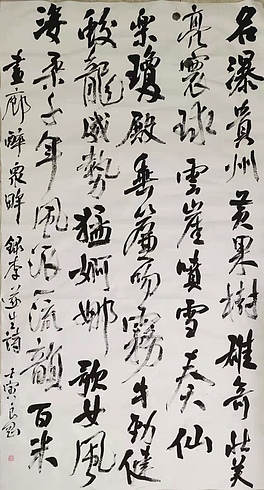 名瀑貴州黃果樹雄奇壯美
亮寰球雲崖噴雪奏仙
樂瓊殿垂簾吻霧牛勁健
蛟龍威勢猛婀娜歌女風
海柔千年風流韻百米
畫廊醉眾眸 錄李遂生詩 壬寅